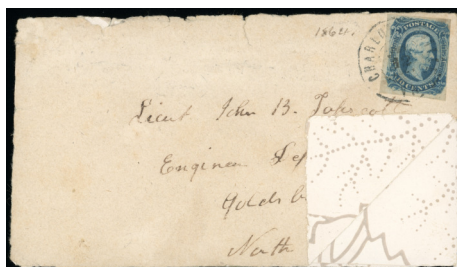 1864.
CHARLO
POSTAGE
CENTS
Lieut John B.
Engineer De
Goldsb
North